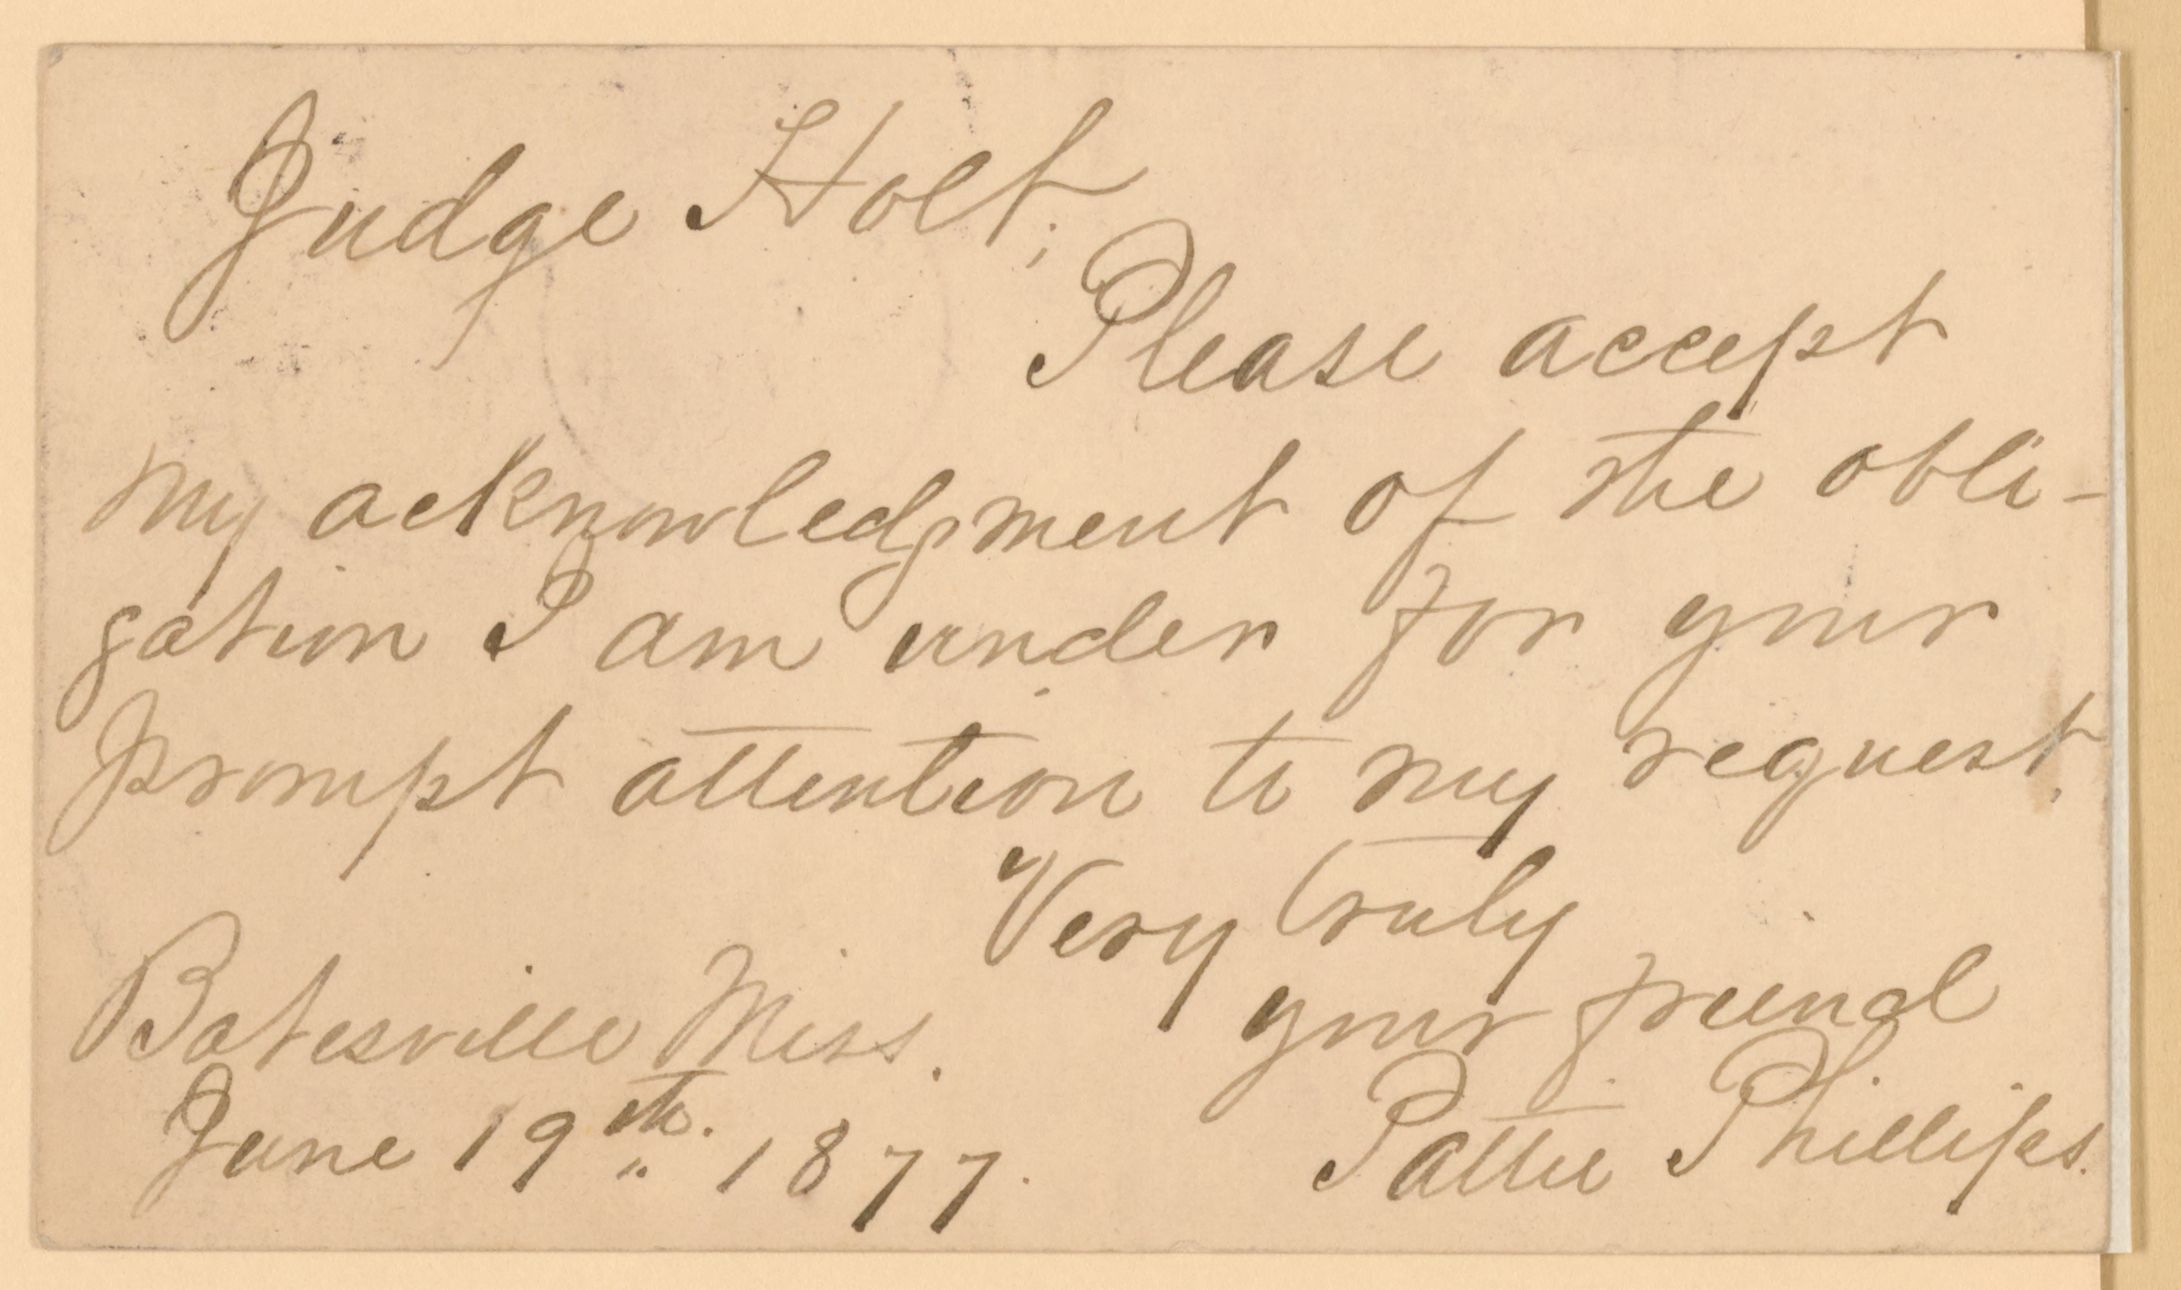 Judge Holt;
Please accept
my acknowledgment of the obli-
gation I am under for your
prompt attention to my request.
Very truly
your friend
Pattie Phillips.
Batesville Miss.
June 19th. 1877.